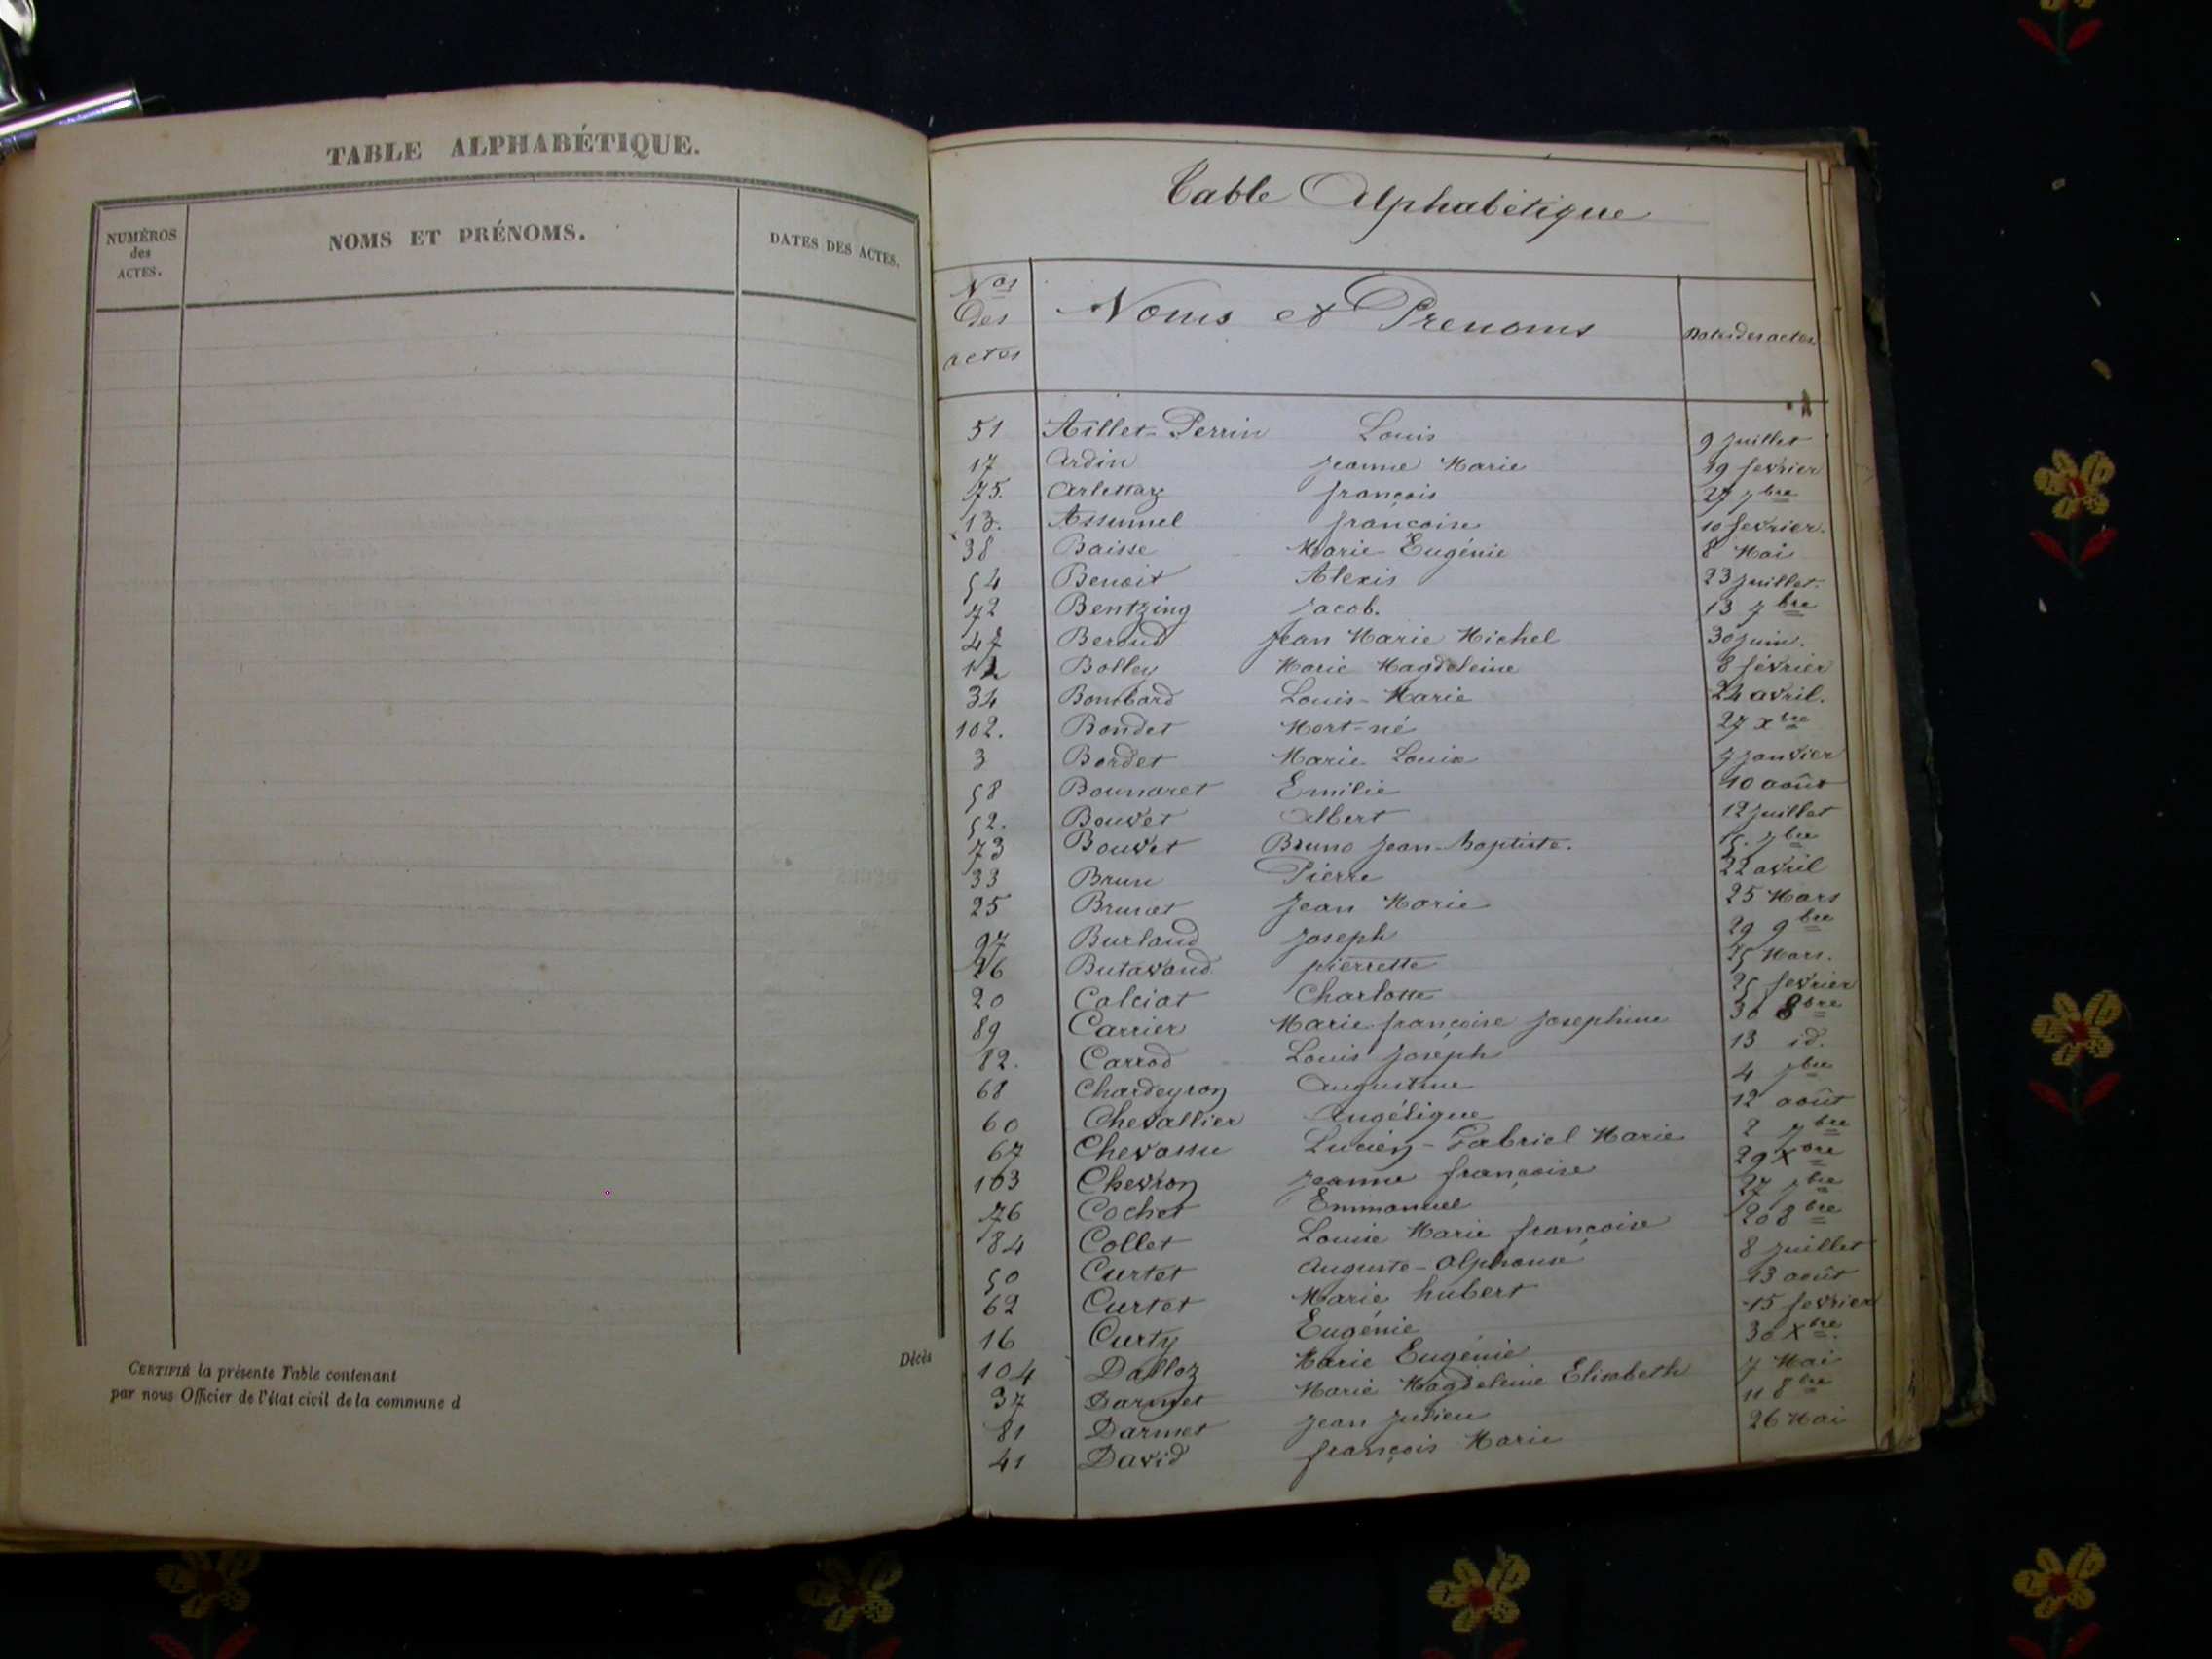 TABLE ALPHABÉTIQUE.
NUMÉROS
des
ACTES.
NOMS ET PRÉNOMS.
DATES DES ACTES.
CERTIFIÉ la présente Table contenant
Décès
par nous Officier de l'état civil de la commune d
Table Alphabétique
Nos
des
actes
Noms et Prenoms
Dates des actes.
51 Aillet-Perrin Louis 9 juillet
17 Ardin jeanne Marie 19 fevrier
75. Arlettaz françois 27 7bre
13. Assumel françoise 10 fevrier.
38 Baisse Marie Eugénie 8 Mai
54 Benoit Alexis 23 juillet.
72 Bentzing jacob. 13 7bre
47 Beroud jean Marie Michel 30 juin.
12 Bolley Marie Magdeleine 8 février
34 Bombard Louis-Marie 24 avril.
102. Bondet Mort-né 27 xbre
3 Bordet Marie Louise 7 janvier
58 Bounaret Emilie 10 août
52. Bouvet Albert 12 juillet
73 Bouvet Bruno jean-baptiste. 15. 7bre
33 Brun Pierre 22 avril
25 Brunet jean Marie 25 Mars
97 Burland joseph 29 9bre
26 Butavand pierrette 25 Mars.
20 Calciat Charlotte 25 fevrier
89 Carrier Marie françoise josephine 30 8bre
82. Carrod Louis joseph 13 id.
68 Chardeyron Augustine 4 7bre
60 Chevallier Angélique 12 août
67 Chevassu Lucien-Gabriel Marie 2 7bre
103 Chevron jeanne françoise 29 Xbre
76 Cochet Emmanuel 27 7bre
84 Collet Louise Marie françoise 20 8bre
50 Curtet Auguste-Alphonse 8 juillet
62 Curtet Marie hubert 13 août
16 Curty Eugénie 15 fevrier
104 Dalloz Marie Eugénie 30 Xbre.
37 Darmet Marie Magdeleine Elisabeth 7 Mai
81 Darmet jean julien 11 8bre
41 David françois Marie 26 Mai